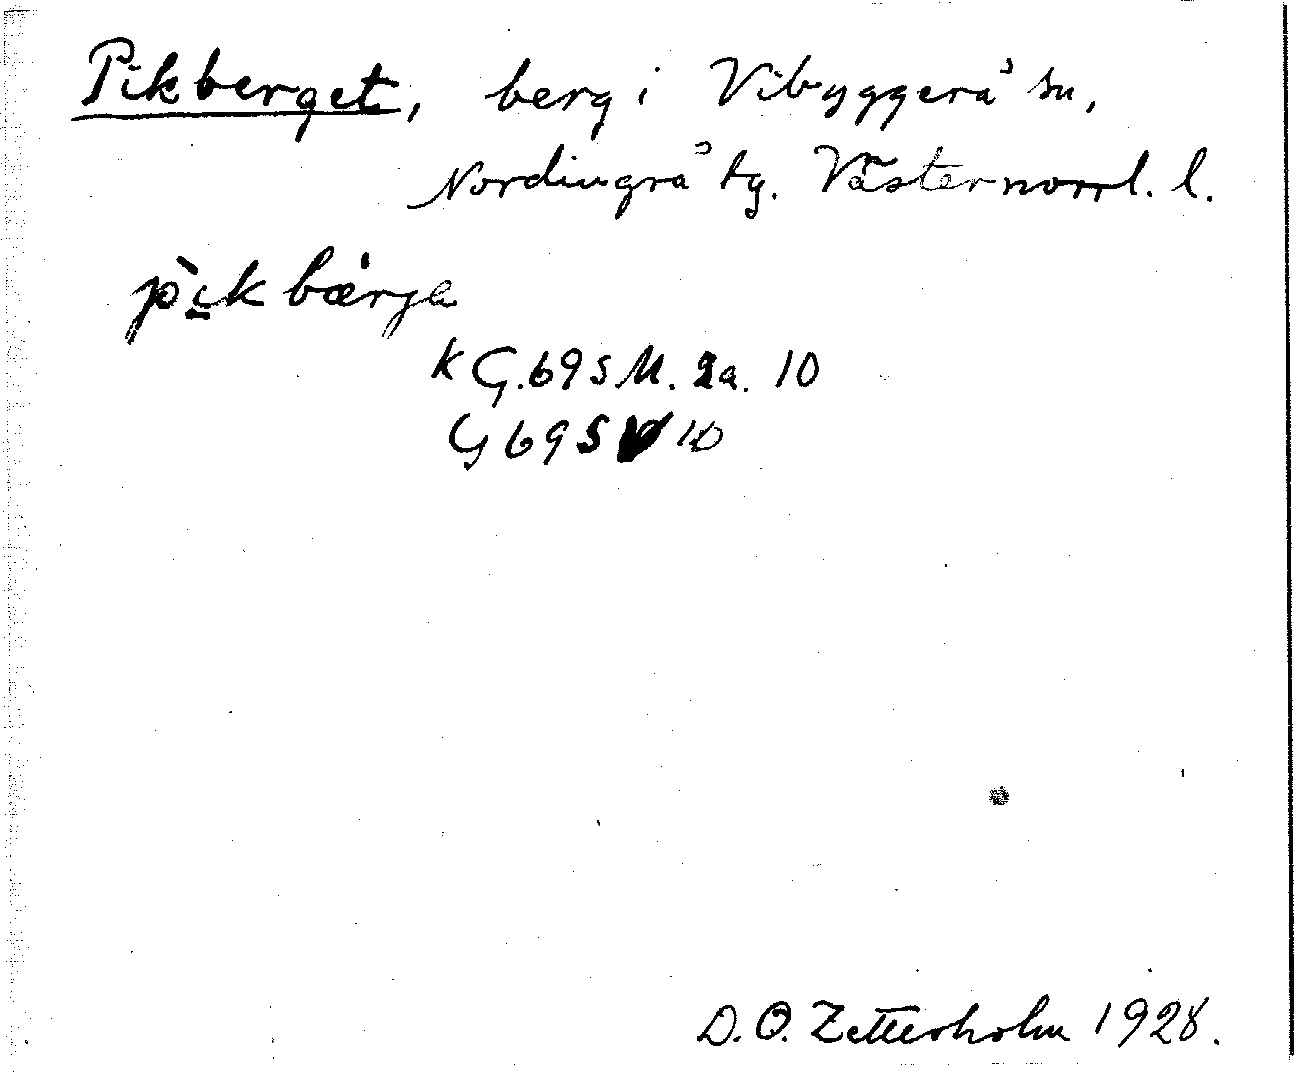 Pikberget, berg i Vibyggerå sn,
Nordingrå tg. Västernorrl. l.
pìk bærja
K G. 69 s M. 2a. 10
G 69 S V 10
D. O. Zetterholm 1928.